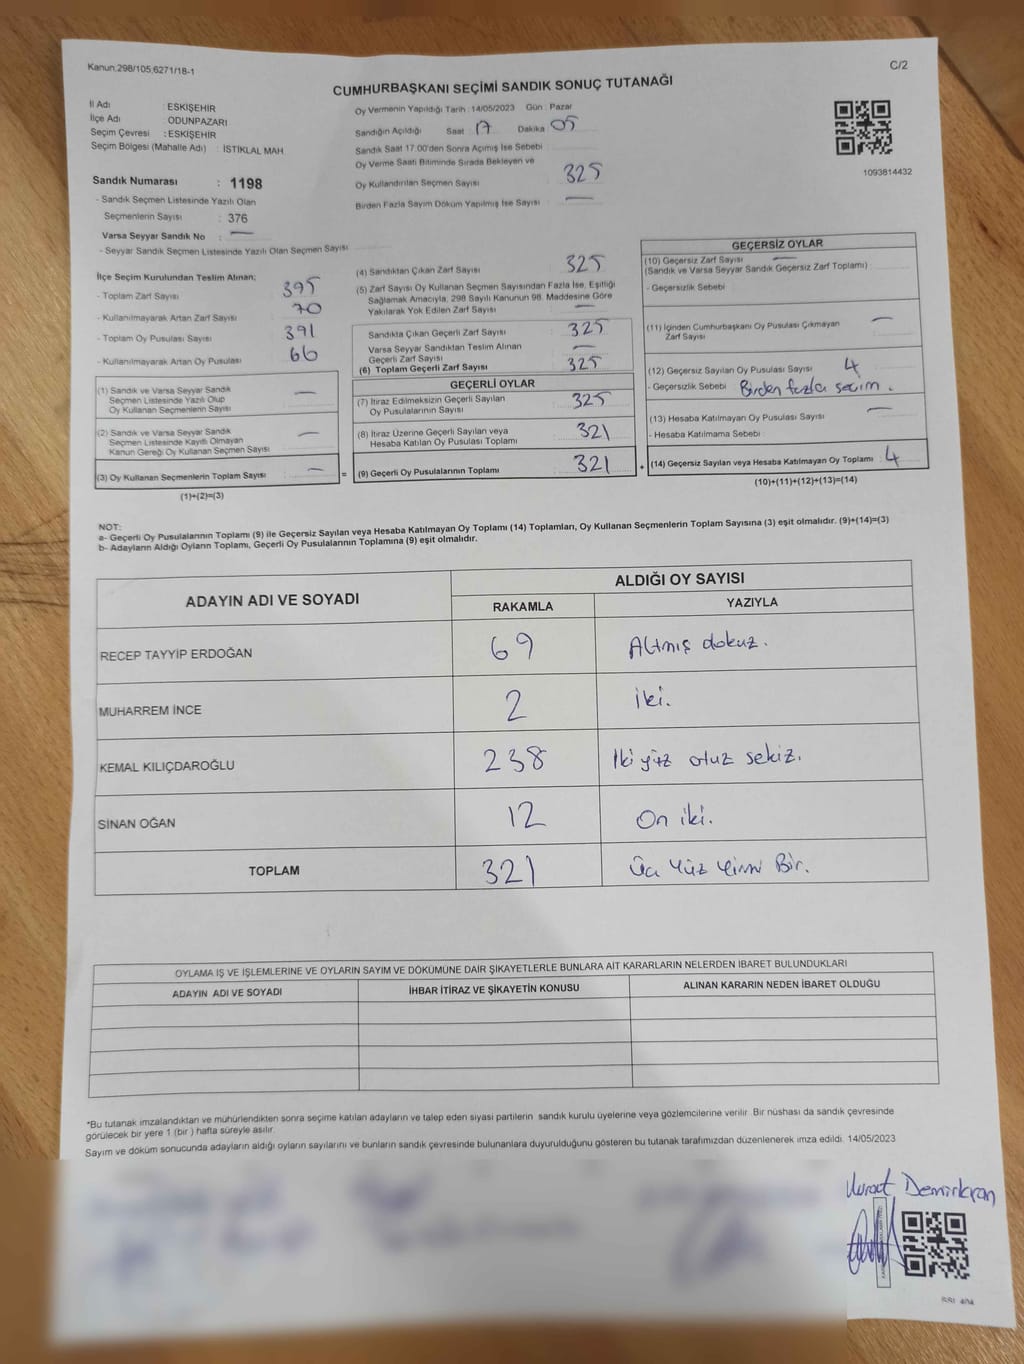 Kanun:298/105,6271/18-1
C/2
CUMHURBAŞKANI SEÇİMİ SANDIK SONUÇ TUTANAĞI
İl Adı : ESKİŞEHİR
İlçe Adı : ODUNPAZARI
Seçim Çevresi : ESKİŞEHİR
Seçim Bölgesi (Mahalle Adı) : İSTİKLAL MAH.
Sandık Numarası : 1198
- Sandık Seçmen Listesinde Yazılı Olan
Seçmenlerin Sayısı : 376
Varsa Seyyar Sandık No : —
- Seyyar Sandık Seçmen Listesinde Yazılı Olan Seçmen Sayısı
Oy Vermenin Yapıldığı Tarih : 14/05/2023 Gün : Pazar
Sandığın Açıldığı Saat : 17 Dakika : 05
Sandık Saat 17:00'den Sonra Açımış İse Sebebi :
Oy Verme Saati Bitiminde Sırada Bekleyen ve
Oy Kullandırılan Seçmen Sayısı : 325
Birden Fazla Sayım Döküm Yapılmış İse Sayısı : —
1093814432
İlçe Seçim Kurulundan Teslim Alınan;
- Toplam Zarf Sayısı : 395
- Kullanılmayarak Artan Zarf Sayısı : 70
- Toplam Oy Pusulası Sayısı : 391
- Kullanılmayarak Artan Oy Pusulası : 66
(1) Sandık ve Varsa Seyyar Sandık
Seçmen Listesinde Yazılı Olup
Oy Kullanan Seçmenlerin Sayısı : —
(2) Sandık ve Varsa Seyyar Sandık
Seçmen Listesinde Kayıtlı Olmayan
Kanun Gereği Oy Kullanan Seçmen Sayısı : —
(3) Oy Kullanan Seçmenlerin Toplam Sayısı : — =
(1)+(2)=(3)
(4) Sandıktan Çıkan Zarf Sayısı : 325
(5) Zarf Sayısı Oy Kullanan Seçmen Sayısından Fazla İse, Eşitliği
Sağlamak Amacıyla, 298 Sayılı Kanunun 98. Maddesine Göre
Yakılarak Yok Edilen Zarf Sayısı : —
Sandıkta Çıkan Geçerli Zarf Sayısı : 325
Varsa Seyyar Sandıktan Teslim Alınan
Geçerli Zarf Sayısı : —
(6) Toplam Geçerli Zarf Sayısı : 325
GEÇERLİ OYLAR
(7) İtiraz Edilmeksizin Geçerli Sayılan
Oy Pusulalarının Sayısı : 325
(8) İtiraz Üzerine Geçerli Sayılan veya
Hesaba Katılan Oy Pusulası Toplamı : 321
(9) Geçerli Oy Pusulalarının Toplamı : 321 +
GEÇERSİZ OYLAR
(10) Geçersiz Zarf Sayısı : —
(Sandık ve Varsa Seyyar Sandık Geçersiz Zarf Toplamı)
- Geçersizlik Sebebi :
(11) İçinden Cumhurbaşkanı Oy Pusulası Çıkmayan
Zarf Sayısı : —
(12) Geçersiz Sayılan Oy Pusulası Sayısı : 4
- Geçersizlik Sebebi : Birden fazla seçim.
(13) Hesaba Katılmayan Oy Pusulası Sayısı : —
- Hesaba Katılmama Sebebi :
(14) Geçersiz Sayılan veya Hesaba Katılmayan Oy Toplamı : 4
(10)+(11)+(12)+(13)=(14)
NOT:
a- Geçerli Oy Pusulalarının Toplamı (9) ile Geçersiz Sayılan veya Hesaba Katılmayan Oy Toplamı (14) Toplamları, Oy Kullanan Seçmenlerin Toplam Sayısına (3) eşit olmalıdır. (9)+(14)=(3)
b- Adayların Aldığı Oyların Toplamı, Geçerli Oy Pusulalarının Toplamına (9) eşit olmalıdır.
ADAYIN ADI VE SOYADI ALDIĞI OY SAYISI
RAKAMLA YAZIYLA
RECEP TAYYİP ERDOĞAN 69 Altmış dokuz.
MUHARREM İNCE 2 iki.
KEMAL KILIÇDAROĞLU 238 İki yüz otuz sekiz.
SİNAN OĞAN 12 On iki.
TOPLAM 321 Üç Yüz Yirmi Bir.
OYLAMA İŞ VE İŞLEMLERİNE VE OYLARIN SAYIM VE DÖKÜMÜNE DAİR ŞİKAYETLERLE BUNLARA AİT KARARLARIN NELERDEN İBARET BULUNDUKLARI
ADAYIN ADI VE SOYADI İHBAR İTİRAZ VE ŞİKAYETİN KONUSU ALINAN KARARIN NEDEN İBARET OLDUĞU
*Bu tutanak imzalandıktan ve mühürlendikten sonra seçime katılan adayların ve talep eden siyasi partilerin sandık kurulu üyelerine veya gözlemcilerine verilir. Bir nüshası da sandık çevresinde
görülecek bir yere 1 (bir ) hafta süreyle asılır.
Sayım ve döküm sonucunda adayların aldığı oyların sayılarını ve bunların sandık çevresinde bulunanlara duyurulduğunu gösteren bu tutanak tarafımızdan düzenlenerek imza edildi. 14/05/2023
Murat Demirkıran